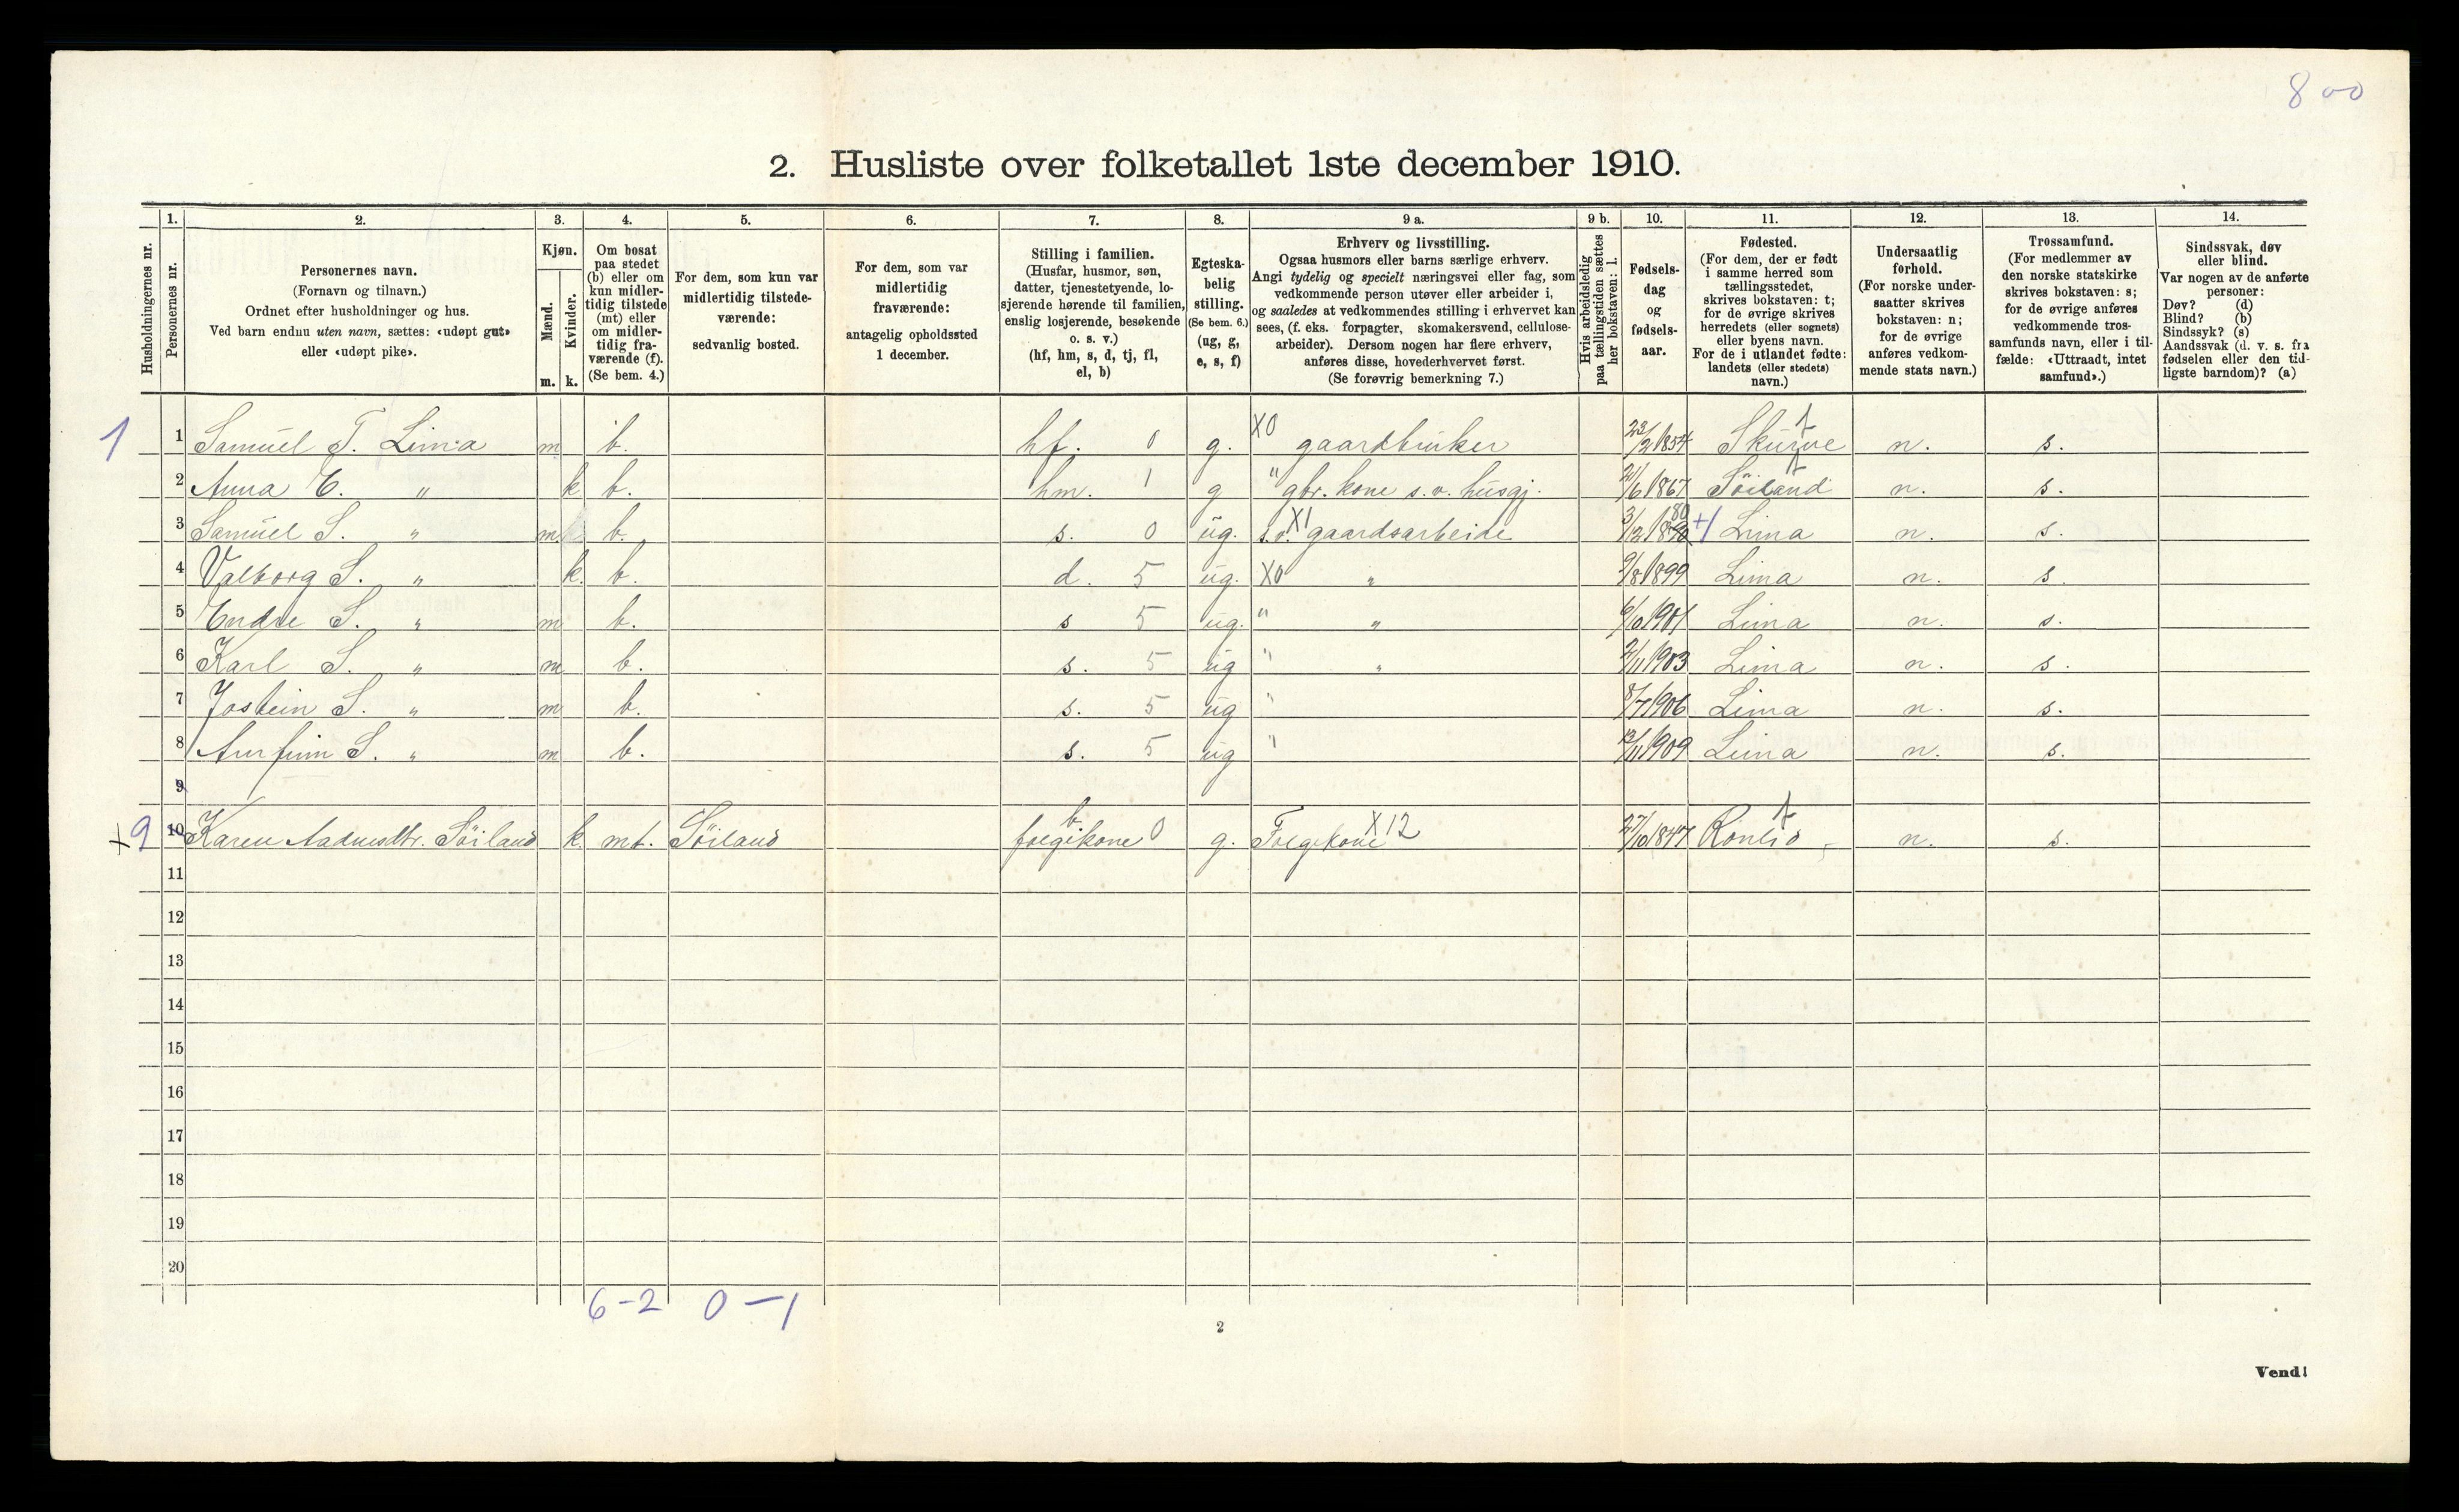 8 00
2. Husliste over folketallet 1ste december 1910.
Husholdningernes nr.
1. Personernes nr.
2. Personernes navn. (Fornavn og tilnavn.) Ordnet efter husholdninger og hus. Ved barn endnu uten navn, sættes: «udøpt gut» eller «udøpt pike».
3. Kjøn. Mænd. m. Kvinder. k.
4. Om bosat paa stedet (b) eller om kun midler-tidig tilstede (mt) eller om midler-tidig fra-værende (f). (Se bem. 4.)
5. For dem, som kun var midlertidig tilstede-værende: sedvanlig bosted.
6. For dem, som var midlertidig fraværende: antagelig opholdssted 1 december.
7. Stilling i familien. (Husfar, husmor, søn, datter, tjenestetyende, lo-sjerende hørende til familien, enslig losjerende, besøkende o. s. v.) (hf, hm, s, d, tj, fl, el, b)
8. Egteska-belig stilling. (Se bem. 6.) (ug, g, e, s, f)
9 a. Erhverv og livsstilling. Ogsaa husmors eller barns særlige erhverv. Angi tydelig og specielt næringsvei eller fag, som vedkommende person utøver eller arbeider i, og saaledes at vedkommendes stilling i erhvervet kan sees, (f. eks. forpagter, skomakersvend, cellulose-arbeider). Dersom nogen har flere erhverv, anføres disse, hovederhvervet først. (Se forøvrig bemerkning 7.)
9 b. Hvis arbeidsledig paa tællingstiden sættes her bokstaven: l.
10. Fødsels-dag og fødsels-aar.
11. Fødested. (For dem, der er født i samme herred som tællingsstedet, skrives bokstaven: t; for de øvrige skrives herredets (eller sognets) eller byens navn. For de i utlandet fødte: landets (eller stedets) navn.)
12. Undersaatlig forhold. (For norske under-saatter skrives bokstaven: n; for de øvrige anføres vedkom-mende stats navn.)
13. Trossamfund. (For medlemmer av den norske statskirke skrives bokstaven: s; for de øvrige anføres vedkommende tros-samfunds navn, eller i til-fælde: «Uttraadt, intet samfund».)
14. Sindssvak, døv eller blind. Var nogen av de anførte personer: Døv? (d) Blind? (b) Sindssyk? (s) Aandssvak (d. v. s. fra fødselen eller den tid-ligste barndom)? (a)
1 1 Samuel T. Lima m b. hf. 0 g. X0 gaardbruker 23/2 1854 Skurve t n. s.
2 Anna E. " k b. hm. 1 g " gbr. kone s.v. husgj. 21/6 1867 Söiland n. s.
3 Samuel S. " m b. s. 0 ug. s.v. X1 gaardsarbeide 3/12 1890 80 +1 Lima n. s.
4 Valborg S. " k. b. d. 5 ug. X0 " 9/8 1899 Lima n. s.
5 Endre S. " m b. s 5 ug. " " 6/10 1901 Lima n. s.
6 Karl S. " m b. s. 5 ug " " 2/11 1903 Lima n. s.
7 Jostein S. " m b. s. 5 ug " 8/7 1906 Lima n. s.
8 Arnfinn S. " m b. s. 5 ug " 13/11 1909 Lima n. s.
9
+ 9 10 Karen Aadnesdtr. Söiland k mt. Söiland b. folgekone 0 g. Folgekone X12 27/10 1847 t n. s.
11
12
13
14
15
16
17
18
19
20
6-2 0-1
2
Vend!